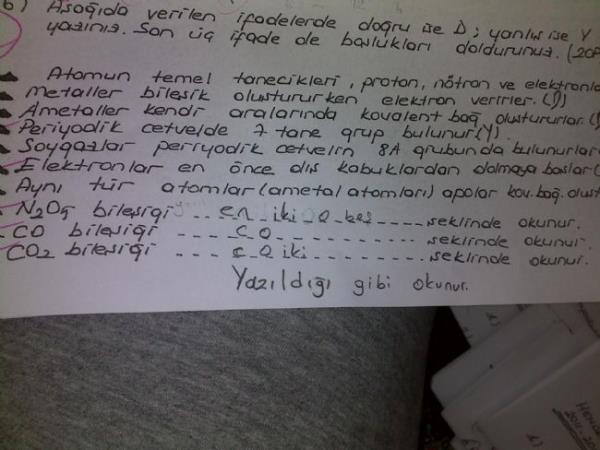 b) Aşağıda verilen ifadelerde doğru ise D; yanlış ise Y
yazınız. Son üç ifade de boşlukları doldurunuz. (20P
Atomun temel tanecikleri, proton, nötron ve elektronla
Metaller bileşik oluştururken elektron verirler. (D)
Ametaller kendi aralarında kovalent bağ oluştururlar. (
Periyodik cetvelde 7 tane grup bulunur (Y).
Soygazlar periyodik cetvelin 8A grubunda bulunurlar
Elektronlar en önce dış kabuklardan dolmaya başlar (
Aynı tür atomlar (ametal atomları) apolar kov. bağ. oluşt
N2O5 bileşiği ... en iki o beş ... şeklinde okunur.
CO bileşiği ... c o ... şeklinde okunur.
CO2 bileşiği ... c o iki ... şeklinde okunur.
Yazıldığı gibi okunur.